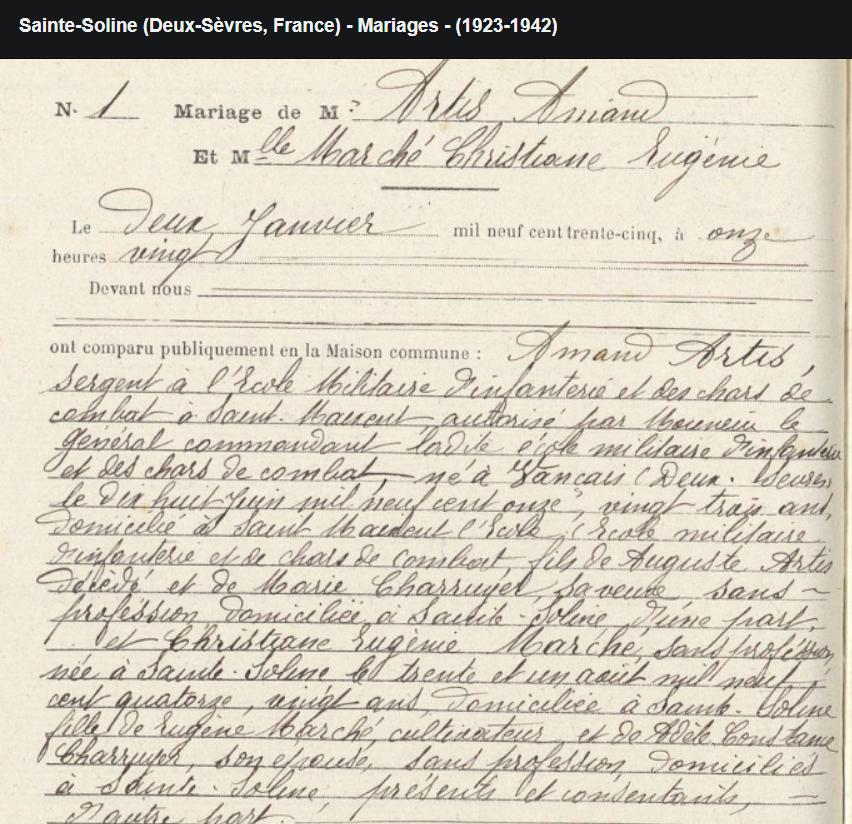 Sainte-Soline (Deux-Sèvres, France) - Mariages - (1923-1942)
N. 1 Mariage de Mr Artis Amand
Et Mlle Marché Christiane Eugénie
Le deux Janvier mil neuf cent trente-cinq, à onze
heures vingt
Devant nous
ont comparu publiquement en la Maison commune : Amand Artis,
sergent à l'Ecole Militaire d'infanterie et des chars de
combat à Saint-Maixent autorisé par Monsieur le
Général commandant ladite école militaire d'infanterie
et des chars de combat, né à Vançais (Deux-Sèvres
le dix huit Juin mil neuf cent onze, vingt trois ans,
domicilié à Saint Maixent l'Ecole, (Ecole militaire
d'infanterie et de chars de combat, fils de Auguste Artis
décédé et de Marie Charruyer, sa veuve sans
profession domiciliée à Sainte-Soline d'une part,
et Christiane Eugénie Marché, sans profession,
née à Sainte-Soline le trente et un août mil neuf
cent quatorze, vingt ans, domiciliée à Sainte-Soline
fille de Eugène Marché, cultivateur, et de Adèle Constance
Charruyer, son épouse, sans profession domiciliés
à Sainte-Soline, présents et consentants,
d'autre part.